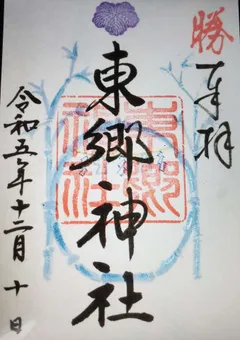 勝
奉拝
東郷神社
東郷
神社
令和五年十二月十日